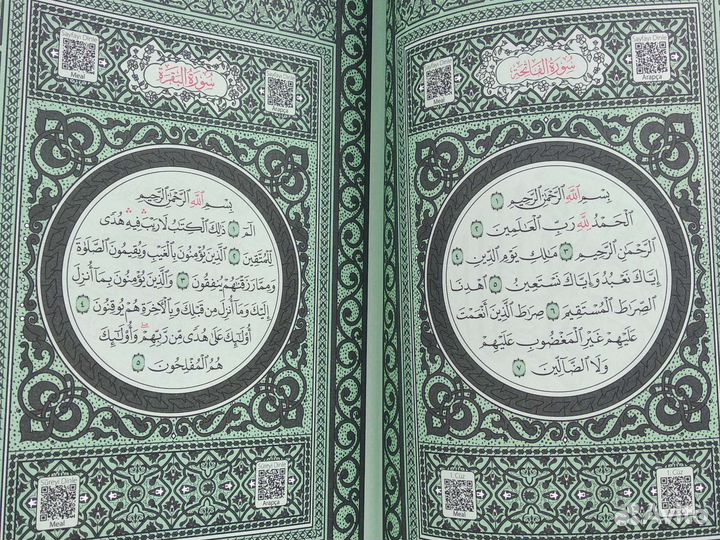 Sayfayı Dinle
Meal
سُورَةُ الْفَاتِحَةِ
Sayfayı Dinle
Arapça
بِسْمِ اللّٰهِ الرَّحْمٰنِ الرَّحِيمِ ١
اَلْحَمْدُ لِلّٰهِ رَبِّ الْعَالَمِينَ ٢
اَلرَّحْمٰنِ الرَّحِيمِ ٣ مَالِكِ يَوْمِ الدِّينِ ٤
اِيَّاكَ نَعْبُدُ وَاِيَّاكَ نَسْتَعِينُ ٥ اِهْدِنَا
الصِّرَاطَ الْمُسْتَقِيمَ ٦ صِرَاطَ الَّذِينَ اَنْعَمْتَ
عَلَيْهِمْ غَيْرِ الْمَغْضُوبِ عَلَيْهِمْ
وَلَا الضَّالِّينَ ٧
1. Cüz
Meal
1. Cüz
Sayfayı Dinle
Meal
سُورَةُ الْبَقَرَةِ
Sayfayı Dinle
بِسْمِ اللّٰهِ الرَّحْمٰنِ الرَّحِيمِ
الٓمٓ ١ ذٰلِكَ الْكِتَابُ لَا رَيْبَ فِيهِ هُدًى
لِلْمُتَّقِينَ ٢ اَلَّذِينَ يُؤْمِنُونَ بِالْغَيْبِ وَيُقِيمُونَ الصَّلٰوةَ
وَمِمَّا رَزَقْنَاهُمْ يُنْفِقُونَ ٣ وَالَّذِينَ يُؤْمِنُونَ بِمَٓا اُنْزِلَ
اِلَيْكَ وَمَٓا اُنْزِلَ مِنْ قَبْلِكَ وَبِالْاٰخِرَةِ هُمْ يُوقِنُونَ ٤
اُو۬لٰٓئِكَ عَلٰى هُدًى مِنْ رَبِّهِمْ وَاُو۬لٰٓئِكَ
هُمُ الْمُفْلِحُونَ ٥
Sûreyi Dinle
Meal
Sûreyi Dinle
Arapça
Avito